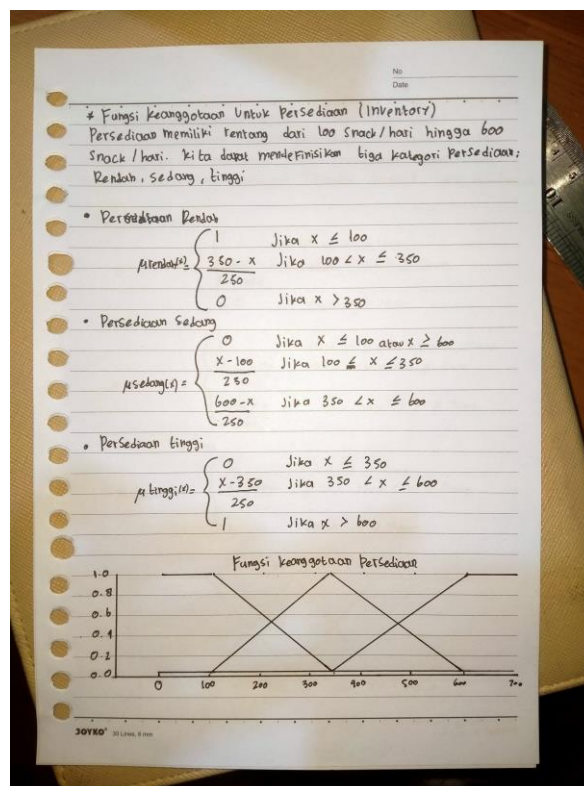 No
Date
* Fungsi keanggotaan Untuk Persediaan (Inventory)
Persediaan memiliki rentang dari 100 snack/hari hingga 600
snack/hari. kita dapat mendefinisikan tiga kategori persediaan;
Rendah, sedang, tinggi
• Persediaan Rendah
1 Jika x ≤ 100
μrendah(x)= 350 - x / 250 Jika 100 < x ≤ 350
0 Jika x > 350
• Persediaan Sedang
0 Jika x ≤ 100 atau x ≥ 600
x - 100 / 250 Jika 100 ≤ x ≤ 350
μsedang(x) =
600 - x / 250 Jika 350 < x ≤ 600
• Persediaan tinggi
0 Jika x ≤ 350
μtinggi(x)= x - 350 / 250 Jika 350 < x ≤ 600
1 Jika x > 600
Fungsi keanggotaan Persediaan
1.0
0.8
0.6
0.4
0.2
0.0
0 100 200 300 400 500 600 700
JOYKO 30 Lines, 8 mm
10